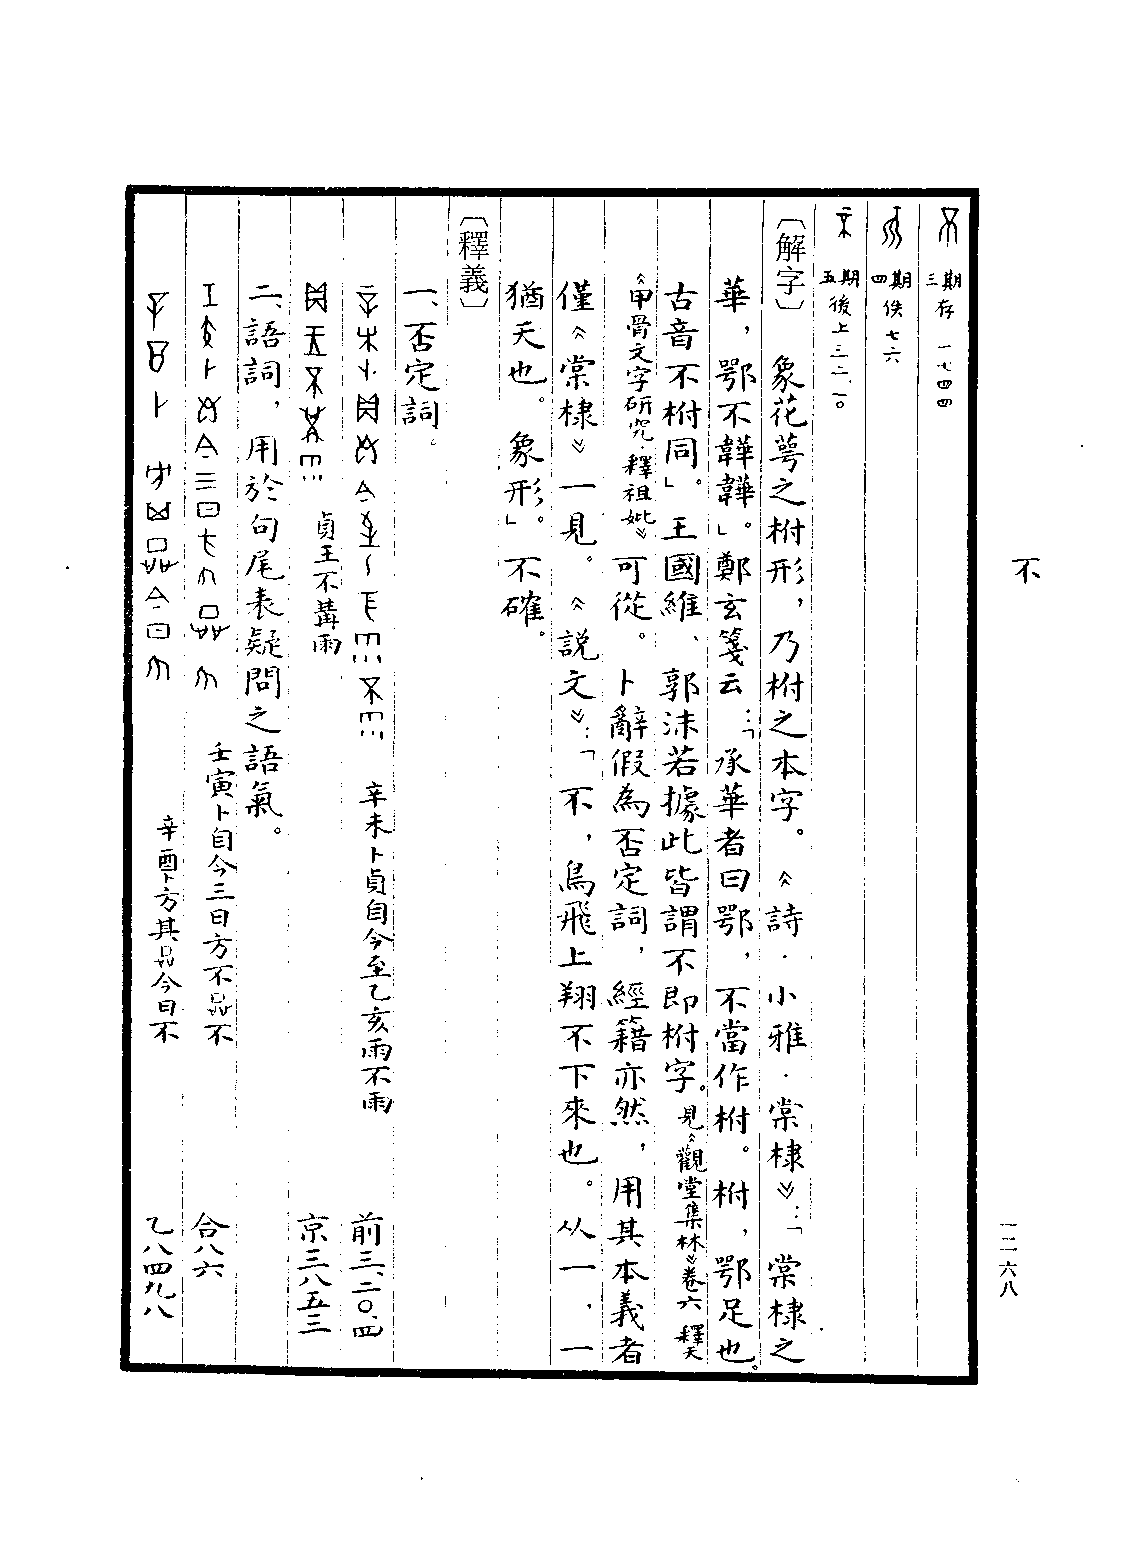 不
一二六八
三期 存一七四四
四期 佚七六
五期 後上三二.一〇
〔解字〕 象花萼之柎形，乃柎之本字。《詩．小雅．棠棣》：「棠棣之
華，鄂不韡韡」。鄭玄箋云：「承華者曰鄂，不當作柎。柎，鄂足也。
古音不柎同。」王國維、郭沫若據此皆謂不即柎字。見《觀堂集林》卷六釋天
《甲骨文字研究．釋祖妣》可從。卜辭假為否定詞，經籍亦然，用其本義者
僅《棠棣》一見。《說文》：「不，鳥飛上翔不下來也。从一，一
猶天也。象形」。不確。
〔釋義〕
一、否定詞。
辛未卜貞自今至乙亥雨不雨 前三.二〇.四
貞王不冓雨 京三八五三
二、語詞，用於句尾表疑問之語氣。
壬寅卜自今三日方不品不 合八六
辛酉卜方其品今日不 乙八四九八